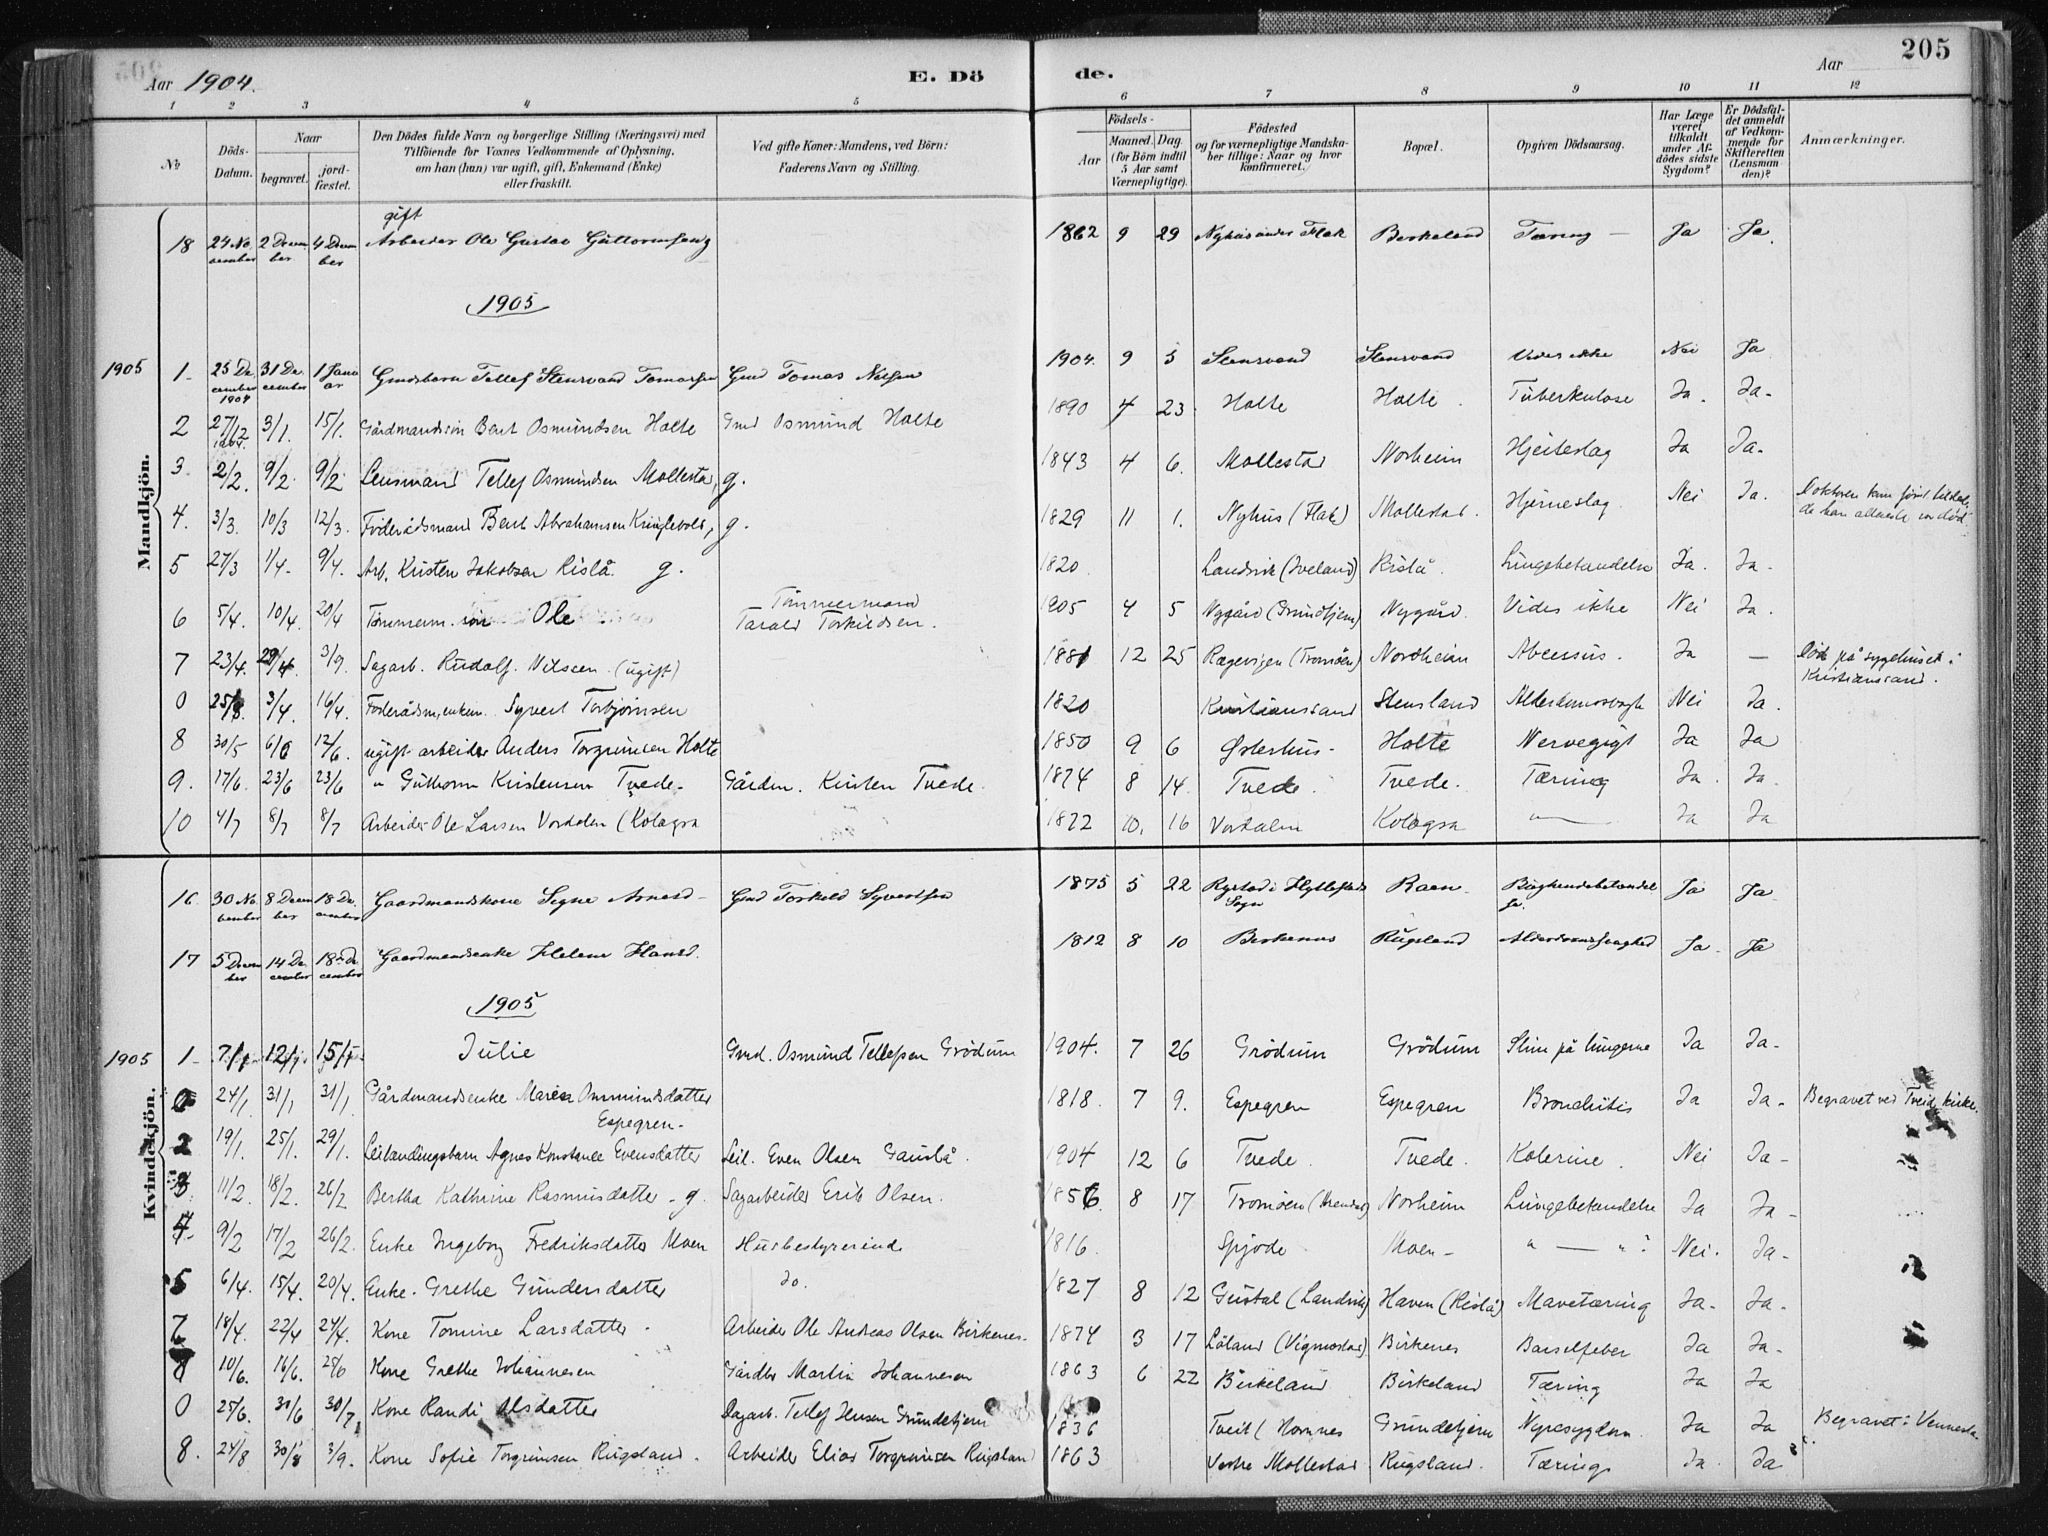 205
Aar 1904. E. Dö de. Aar
1 2 3 4 5 6 7 8 9 10 11 12
№ Döds-Datum. Naar begravet. jordfæstet. Den Dödes fulde Navn og borgerlige Stilling (Næringsvei) med Tilföiende for Voxnes Vedkommende af Oplysning, om han (hun) var ugift, gift, Enkemand (Enke) eller fraskilt. Ved gifte Koner: Mandens, ved Börn: Faderens Navn og Stilling. Födsels- Aar Maaned. Dag. (for Börn indtil 5 Aar samt Værnepligtige). Födested og for værnepligtige Mandskaber tillige: Naar og hvor konfirmeret. Bopæl. Opgiven Dödsaarsag. Har Læge været tilkaldt under Afdödes sidste Sygdom? Er Dödsfaldet anmeldt af Vedkommende for Skifteretten (Lensmanden)? Anmærkninger.
Mandkjön.
gift
18 24 November 2 December 4 December Arbeider Ole Gustav Guttormsen 1862 9 29 Nyhus under Flak Birkeland Tæring Ja Ja.
1905
1905 1. 25 December 1904 31 December 1 Januar Gmdsbarn Tellef Stensvand Tomassen Gmd Tomas Nilsen 1904. 9 5 Stensvand Stensvand Vides ikke Nei Ja
2 27/12 3/1. 15/1. Gårdmandssön Bent Osmundsen Holte Gmd Osmund Holte 1890 4 23. Holte Holte. Tuberkulose Ja. Ja.
3. 2/2. 9/2. 9/2 Lensmand Tellef Osmundsen Mollestad, g. 1843 4 6. Mollestad Norheim Hjerteslag Ja Ja.
4. 3/3. 10/3 12/3. Föderådsmand Bent Abrahamsen, g. 1829 11 1. Nyhus (Flak) Mollestad. Hjerneslag. Nei Ja. Doktoren kom först tilstede da han allerede var död.
5 27/3 1/4. 9/4. Arb. Kristen Jakobsen Rislå. g. 1820 Landvik (Iveland) Rislå. Lungebetændelse Ja. Ja.
6 5/4. 10/4. 20/4 Tömmerm. sön Ole Tömmermand Tarald Torkildsen. 1905 4 5 Nygård (Grundetjern) Nygård. Vides ikke Nei Ja.
7 23/4. 29/4. 3/9. Sagarb. Rudolf Nilsen. (ugift) 1881 12 25 Rægevigen (Tromöen) Nordheim Abcessus. Ja — Död på sygehuset i Kristianssand.
0 25/3. 3/4. 16/4. Föderådsm, enkem. Syvert Torbjörnsen 1820 Kristianssand Stensland Alderdomssvaghet Nei Ja.
8 30/5 6/6 12/6. ugift arbeider Anders Torgrimsen Holte 1850 9 6 Østerhus. Holte Nervegigt Ja Ja
9. 17/6. 23/6 23/6 " Guttorm Kristensen Tvede. Gårdm. Kristen Tvede. 1874 8 14. Tvede. Tvede. Tæring Ja. Ja.
10 4/7 8/7 8/7 Arbeider Ole Larsen Vordalen (Kologra 1822 10. 16 Vordalen Kologra — Ja Ja
Kvindekjön.
16. 30 November 8 December 18 December Gaardmandskone Signe Arnesd. Gmd Torkeld Syvertsen 1875 5 22 Rystad i Hyllestad Sogn Raen. Bughindebetændelse. Ja Ja.
17 5 December 14 December 18 December Gaardmandsenke Helene Hansd. 1812 8 10 Birkenes Rugsland Alderdomssvaghed Ja. Ja
1905
1905 1. 7/1 12/1 15/1 Julie Gmd. Osmund Tellefsen Grödum 1904. 7 26 Grödum Grödum Slim på lungerne Ja Ja.
0 24/1. 31/1 31/1. Gårdmandsenke Maren Ommundsdatter Espegren. 1818. 7 9. Espegren Espegren Bronchitis Ja Ja. Begravet ved Tveide kirke.
2 19/1. 25/1. 29/1. Leilændingsbarn Agnes Konstance Evensdatter Leil. Even Olsen Gauslå. 1904 12 6 Tvede. Tvede. Kolerine. Nei Ja.
3 11/2. 18/2. 26/2 Bertha Kathrine Rasmusdatter. g. Sagarbeider Erik Olsen. 1856. 8 17 Tromöen (Arendal) Norheim Lungebetændelse Ja Ja.
4. 9/2 17/2 26/2. Enke Ingeborg Fredriksdatter Moen Husbestyrerinde 1816. Spjode Moen. " — " Nei. Ja.
5 6/4. 15/4. 20/4. Enke. Grethe Gundersdatter do. 1827 8 12 Gustal (Landvik) Haven (Rislå) Mavetæring Ja. Ja.
7 18/4. 22/4 24/4. Kone Tomine Larsdatter. Arbeider Ole Andreas Olsen Birkenes. 1874 3 17 Löland (Vigmostad) Birkenes Barselfeber Ja Ja.
10/6. 16/6. 25/6 Kone Grethe Johannesen Gårdbr Martin Johannesen 1863 6 22 Birkeland Birkeland Tæring Ja Ja
0 25/6. 30/6 30/7. Kone Randi Alsdatter Dagarb. Tellef Jensen Grundetjern 1836 Tveit (Hornnes Grundetjern Nyresygdom. Ja Ja Begravet i Vennesla.
8. 24/8 30/8 3/9. Kone Sofie Torgrimsen Rugsland. Arbeider Elias Torgrimsen Rugsland 1863 Vestre Mollestad Rugsland. Tæring Ja. Ja